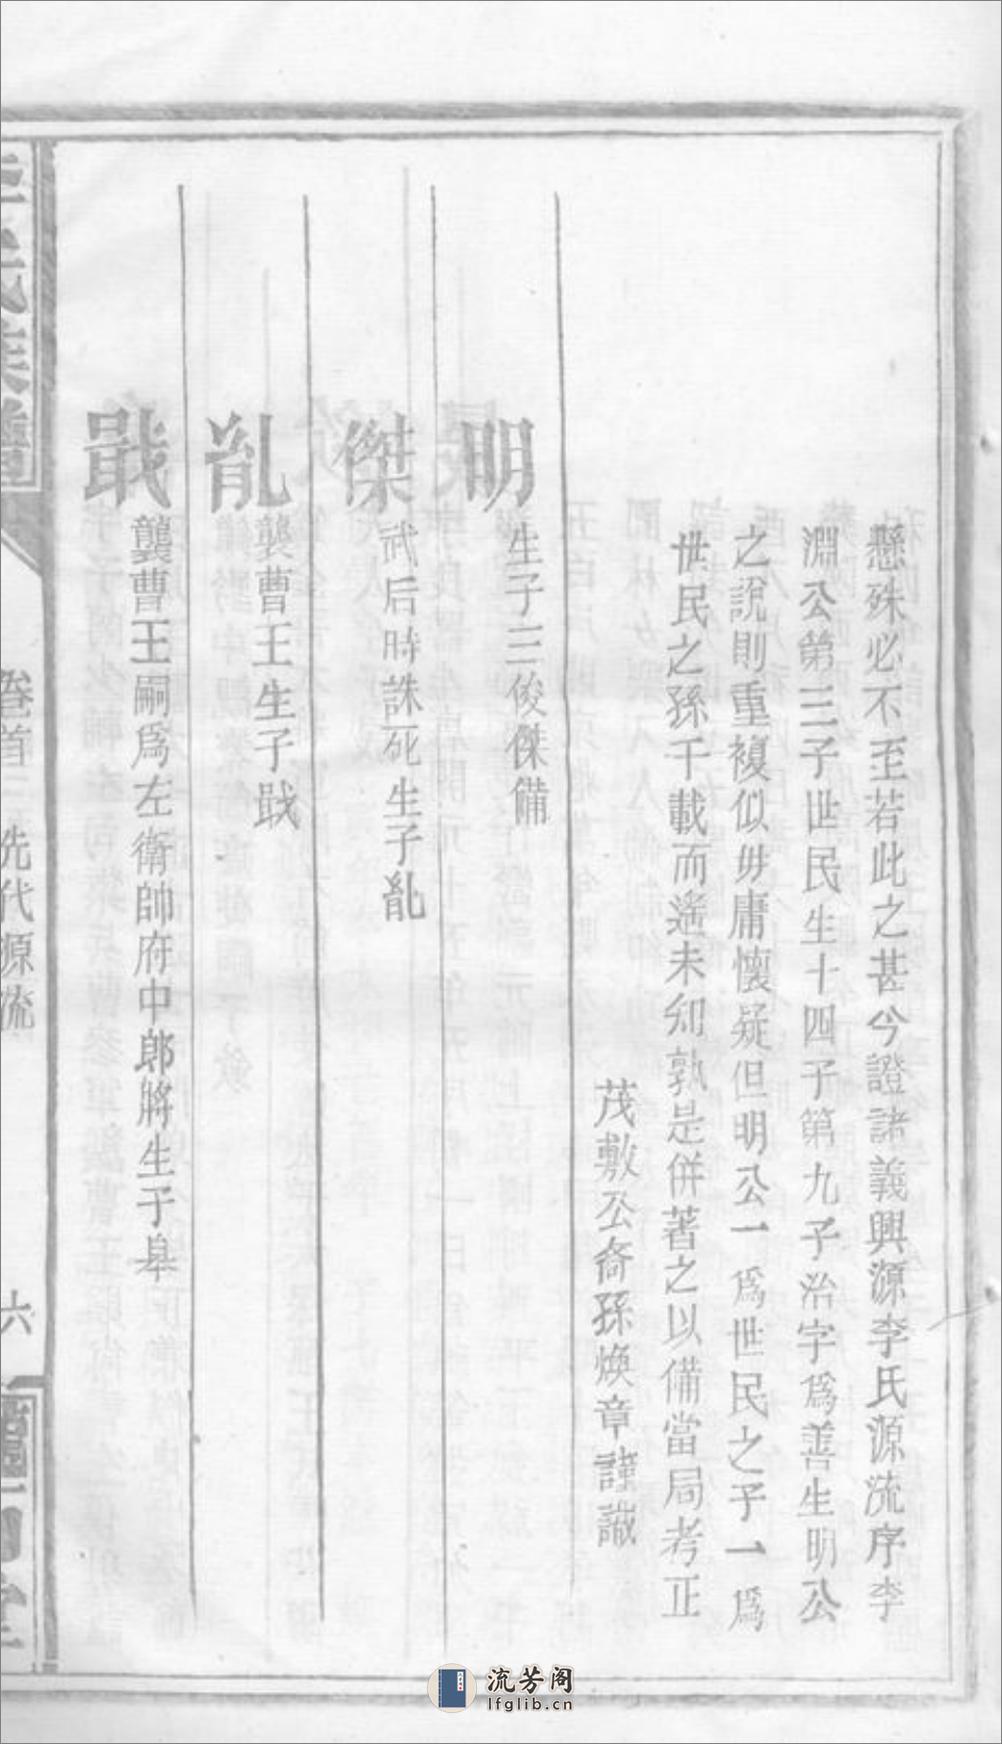 懸殊必不至若此之甚今證諸義興源李氏源流序李
淵公第三子世民生十四子第九子治字爲善生明公
之說則重複似毋庸懷疑但明公一爲世民之子一爲
世民之孫千載而遙未知孰是併著之以備當局考正
茂敷公裔孫煥章謹識
明 生子三俊傑備
傑 武后時誅死生子胤
胤 襲曹王生子戢
戢 襲曹王嗣爲左衛帥府中郎將生子皋
氏族譜
卷首 先代源流
六
流芳阁
lfglib.cn